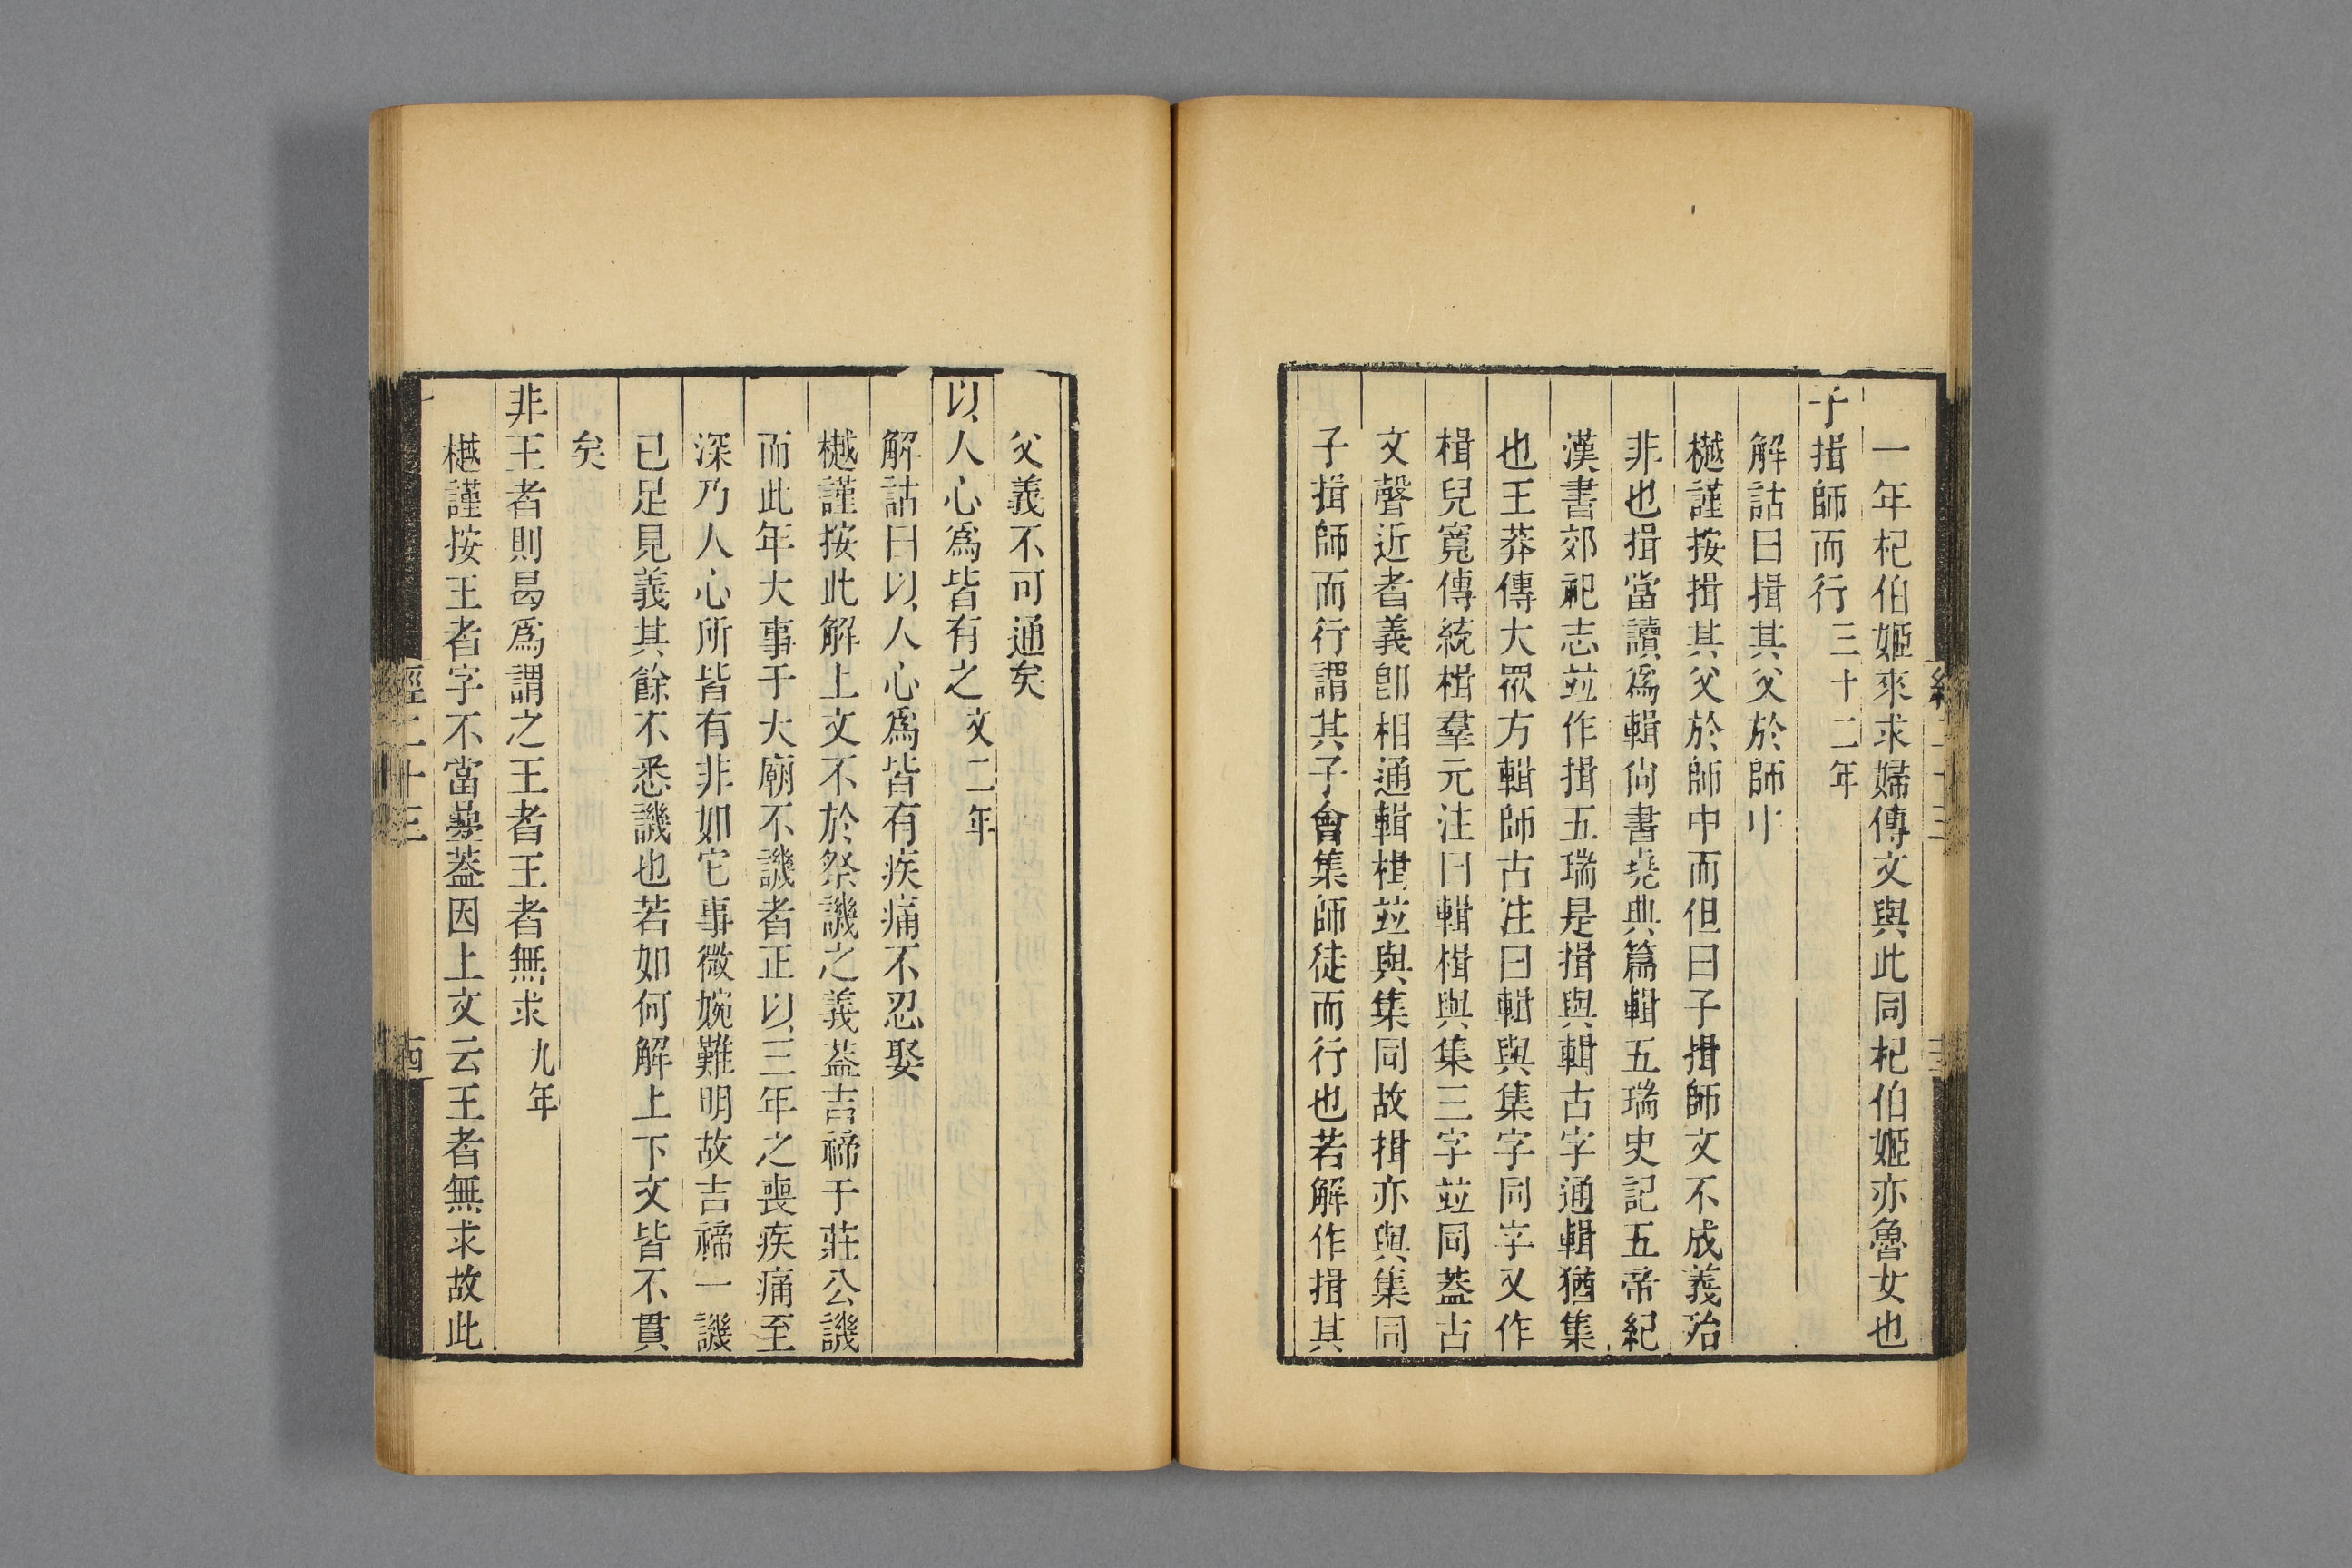 一年杞伯姬來求婦傳文與此同杞伯姬亦魯女也
子揖師而行三十二年
解詁曰揖其父於師中
樾謹按揖其父於師中而但曰子揖師文不成義殆
非也揖當讀爲輯尙書堯典篇輯五瑞史記五帝紀
漢書郊祀志並作揖五瑞是揖與輯古字通輯猶集
也王莽傳大眾方輯師古注曰輯與集字同字又作
楫兒寬傳統楫羣元注曰輯楫與集三字並同葢古
文聲近者義卽相通輯楫並與集同故揖亦與集同
子揖師而行謂其子會集師徒而行也若解作揖其
父義不可通矣
以人心爲皆有之文二年
解詁曰以人心爲皆有疾痛不忍娶
樾謹按此解上文不於祭譏之義葢吉禘于莊公譏
而此年大事于大廟不譏者正以三年之喪疾痛至
深乃人心所皆有非如它事微婉難明故吉禘一譏
已足見義其餘不悉譏也若如何解上下文皆不貫
矣
非王者則曷爲謂之王者王者無求九年
樾謹按王者字不當疊葢因上文云王者無求故此
經二十三